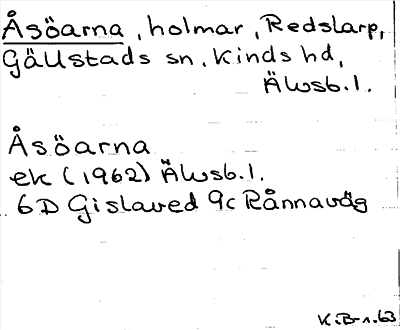 Åsöarna, holmar, Redslarp,
Gällstads sn, Kinds hd,
Älvsb. l.
Åsöarna
ek (1962) Älvsb. l.
6D Gislaved 9c Rånnaväg
K.B-n. 63